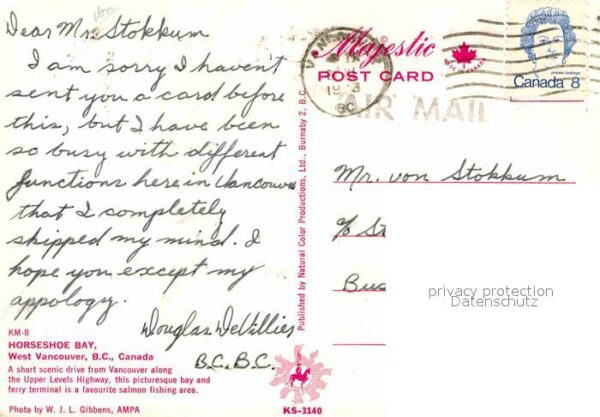 von
Dear Mr. Stokkum
I am sorry I haven't
sent you a card before
this, but I have been
so busy with different
functions here in Vancouver
that I completely
skipped my mind. I
hope you except my
appology.
Douglas DeVillies
B.C.B.C.
KM-8
HORSESHOE BAY,
West Vancouver, B.C., Canada
A short scenic drive from Vancouver along
the Upper Levels Highway, this picturesque bay and
ferry terminal is a favourite salmon fishing area.
Photo by W. J. L. Gibbons, AMPA
Published by Natural Color Productions, Ltd., Burnaby 2, B.C.
KS-3140
Majestic®
POST CARD
MADE IN CANADA
AIR MAIL
Canada 8
Mr. von Stokkum
c/o St
Bus
privacy protection
Datenschutz